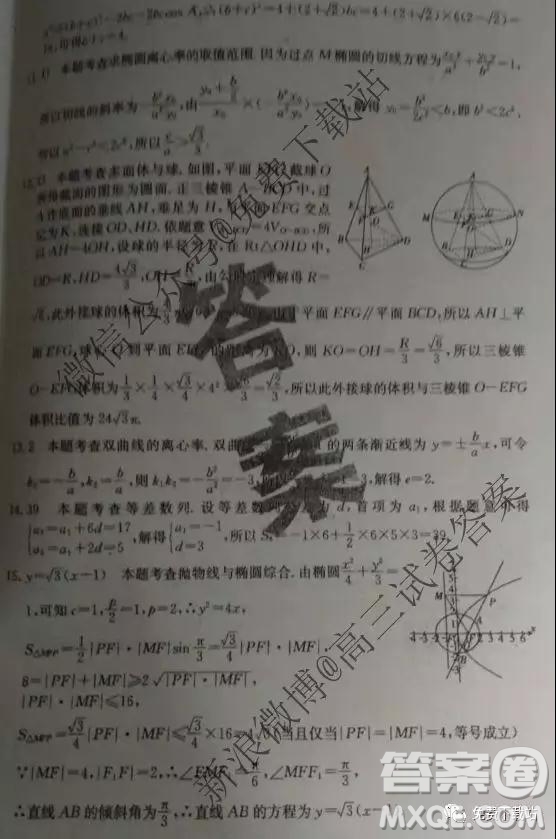 a²=(b+c)²-2bc-2bccos A,∴(b+c)²=4+(2+√2)bc=4+(2+√2)×6(2-√2)=
16,可得b+c=4.
本题考查求椭圆离心率的取值范围.因为过点M椭圆的切线方程为x₀x/a²+y₀y/b²=1,
所以切线的斜率为-b²x₀/a²y₀,由 解得y₀=b³/2c²<b,即b²<2c²,
所以a²-c²<2c²,所以c/a>√3/3.
本题考查多面体与球.如图,平面 截球O
所得截面的图形为圆面.正三棱锥A 中,过
A作底面的垂线AH,垂足为H, 平面EFG交点
记为K,连接OD,HD.依题意 =4V 所
以AH=4OH,设球的半径为R,在Rt△OHD中,
OD=R,HD=4√3/3,OH= 由勾股定理解得R=
√6,此外接球的体积为 由于平面EFG∥平面BCD,所以AH⊥平
面EFG,球心O到平面EFG的距离为KO,则KO=OH=R/3=√6/3,所以三棱锥
O-EFG体积为1/3×1/4×√3/4×4²×√6/3=√2/3,所以此外接球的体积与三棱锥O-EFG
体积比值为24√3π.
13.2 本题考查双曲线的离心率.双曲 的两条渐近线为y=±b/a x,可令
k₁=-b/a,k₂=b/a,则k₁k₂=-b²/a²=-3, 解得e=2.
14.39 本题考查等差数列.设等差数列 为d,首项为a₁,根据题意可得
{a₇=a₁+6d=17 a₃=a₁+2d=5,解得{a₁=-1 d=3,所以S₆=-1×6+1/2×6×5×3=39.
15.y=√3(x-1) 本题考查抛物线与椭圆综合.由椭圆x²/4+y²/3=
1,可知c=1,p/2=1,p=2,∴y²=4x,
S△MPF=1/2|PF|·|MF|sin π/3=√3/4|PF|·|MF|,
8=|PF|+|MF|≥2√|PF|·|MF|,
|PF|·|MF|≤16,
S△MPF=√3/4|PF|·|MF|≤√3/4×16=4√3(当且仅当|PF|=|MF|=4,等号成立)
∵|MF|=4,|F₁F|=2,∴∠EMF₁=π/6,∠MFF₁=π/3,
∴直线AB的倾斜角为π/3,∴直线AB的方程为y=√3(x-1)
答案
微信公众号@免费下载站
新浪微博@高三试卷答案
答案圈
免费下载站